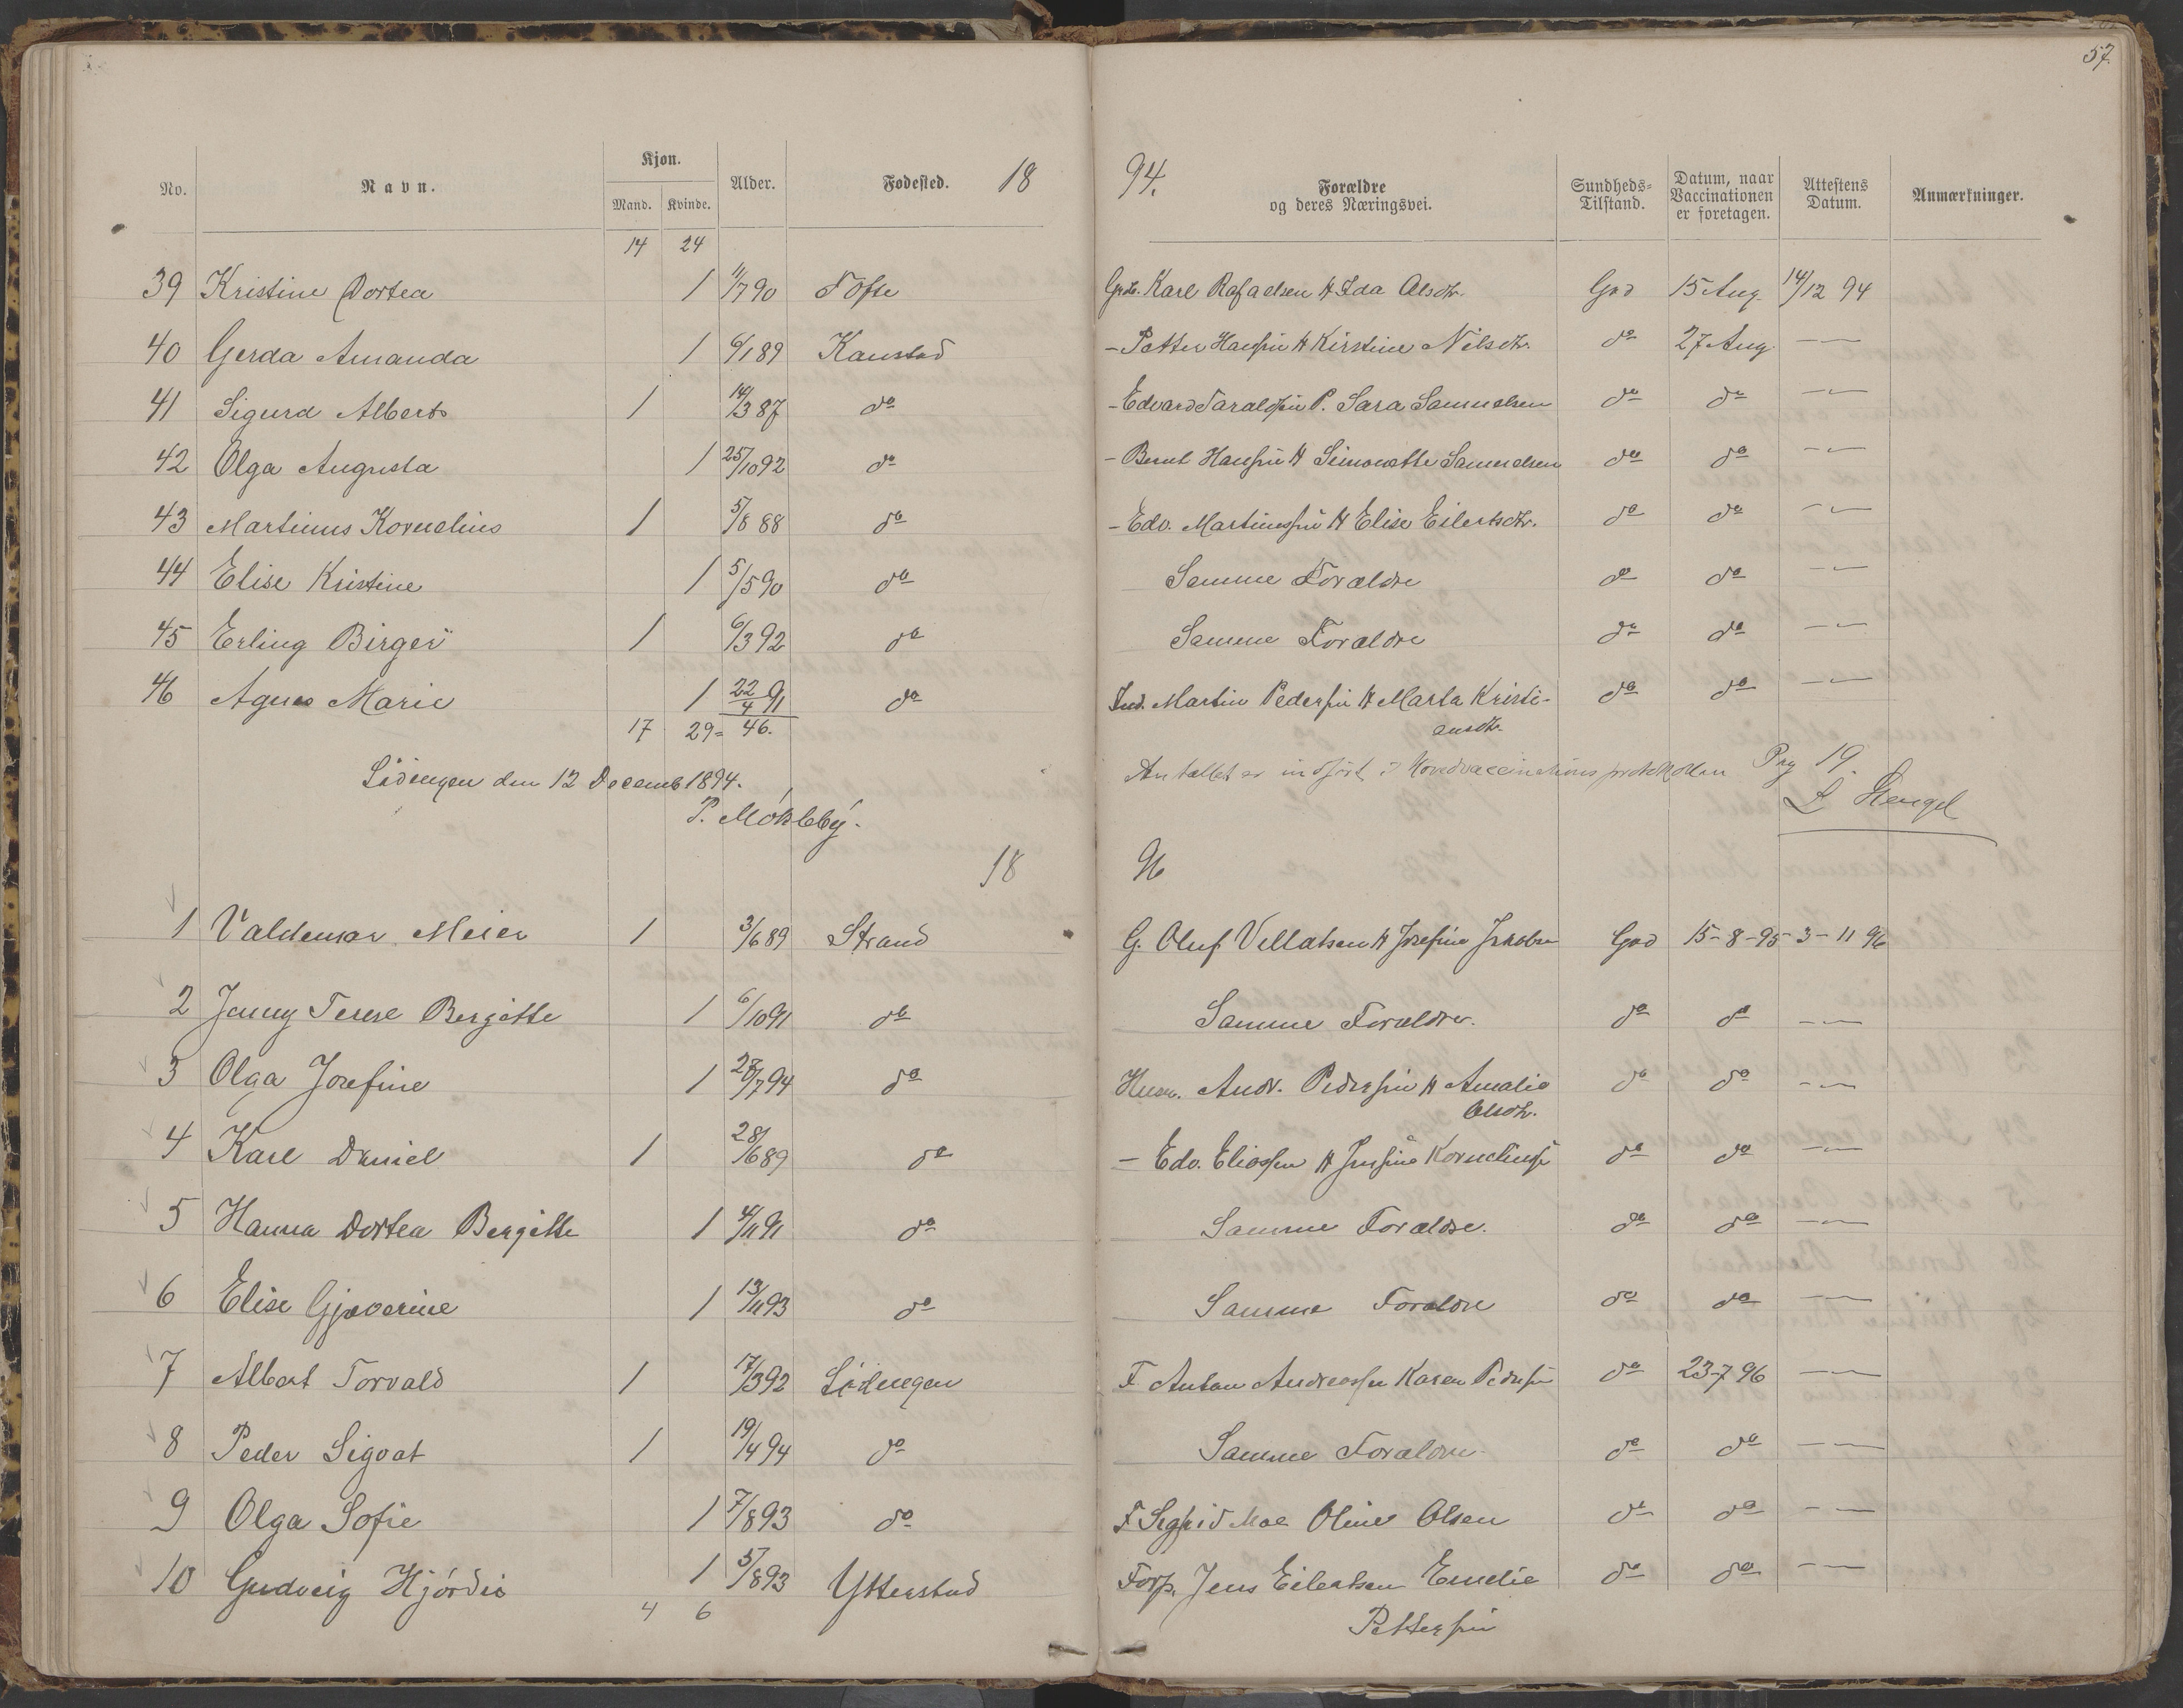 57.
No. Navn. Kjøn. Mand. Kvinde. Alder. Fødested. 18
94. Forældre og deres Næringsvei. Sundheds-Tilstand. Datum, naar Vaccinationen er foretagen. Attestens Datum. Anmærkninger.
14 24
39 Kristine Dortea 1 11/7 90 Gdbr. Karl Rafaelsen & Ida Olsdtr. God 15 Aug. 14/12 94
40 Gerda Amanda 1 6/1 89 Kanstad - Petter Hansen & Kirstine Nilsdtr. do 27 Aug. — " —
41 Sigurd Alberts 1 14/3 87 do - Edvard Taraldsen P. Sara Samuelsen do do — " —
42 Olga Augusta 1 25/10 92 do - Bernt Hansen & Simonette Samuelsen do do — " —
43 Martinus Kornelius 1 5/8 88 do - Edv. Martinussen & Elise Eilertsdtr. do do — " —
44 Elise Kristine 1 5/5 90 do Samme Forældre do do — " —
45 Erling Birger 1 6/3 92 do Samme Forældre do do — " —
46 Agnes Marie 1 22/4 91 do Ind. Martin Pedersen & Marta Kristi-
ansdtr. do do — " —
17 29 = 46.
Lödingen den 12 Decemb 1894.
P. Mökleby.
Antallet er indført i Hovedvaccinationsprotokollen Pag 19.
18 96
1 Valdemar Meier 1 3/6 89 Strand G. Oluf Josefine God 15-8-95 3-11 96
2 Jenny Terese Bergitte 1 6/10 91 do Samme Forældre. do do — " —
3 Olga Josefine 1 /7 94 do Husm. Andr. Pedersen & Amalie
Olsdtr. do do — " —
4 Karl Daniel 1 28/6 89 do - Edv. Eliassen & do do — " —
5 Hanna Dortea Bergitte 1 4/11 91 do Samme Forældre. do do — " —
6 Elise Gjæverine 1 13/11 93 do Samme Forældre do do — " —
7 Albert Torvald 1 17/3 92 Lödingen F Anton Andreassen Karen Pedersen do 23-7 96 — " —
8 Peder Sigvat 1 19/4 94 do Samme Forældre do do — " —
9 Olga Sofie 1 7/8 93 do F Moe Oline Olsen do do — " —
10 Gudveig Hjørdis 1 5/8 93 Ytterstad Forp. Jens Eilertsen Emelie
Pettersen do do — " —
4 6